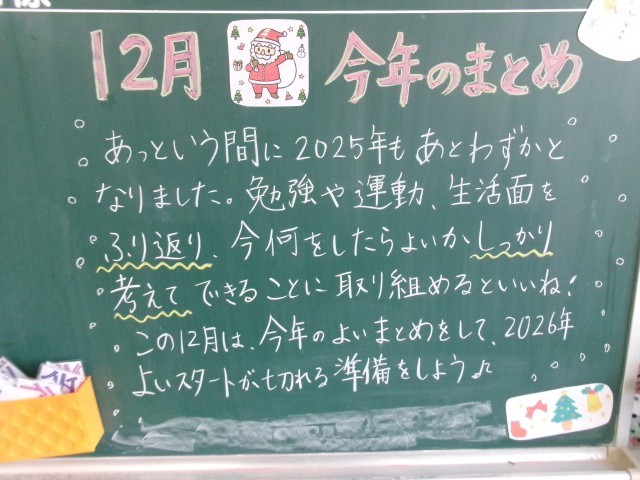 12月 今年のまとめ
あっという間に2025年もあとわずかと
なりました。勉強や運動、生活面を
ふり返り、今何をしたらよいかしっかり
考えてできることに取り組めるといいね!
この12月は、今年のよいまとめをして、2026年
よいスタートが切れる準備をしよう♪